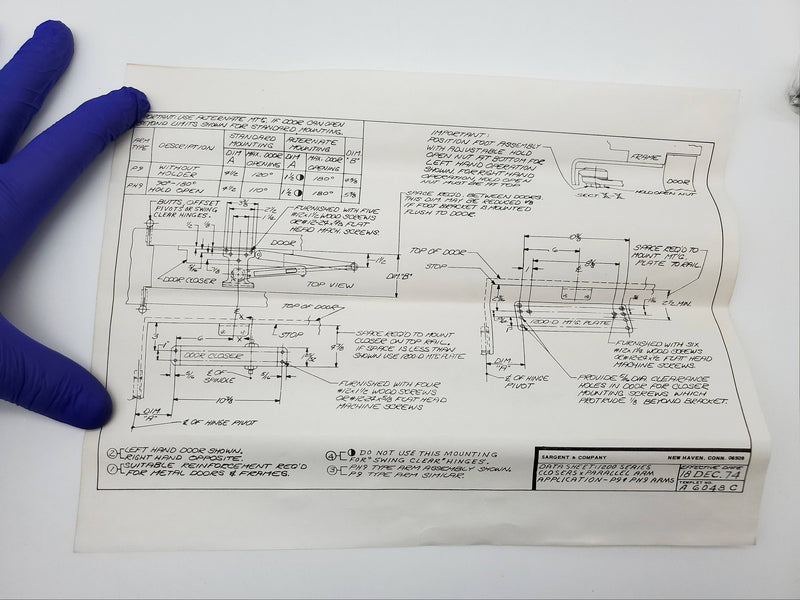 IMPORTANT: USE ALTERNATE MT'G. IF DOOR CAN OPEN
BEYOND LIMITS SHOWN FOR STANDARD MOUNTING.
ARM TYPE
DESCRIPTION
STANDARD MOUNTING
ALTERNATE MOUNTING
DIM. "B"
DIM A
MAX. DOOR OPENING
DIM A
MAX. DOOR OPENING
P9
WITHOUT HOLDER
120°
180°
PH9
90°-180° HOLD OPEN
110°
180°
BUTTS, OFFSET
PIVOTS OR SWING
CLEAR HINGES.
FURNISHED WITH FIVE
#12x1½ WOOD SCREWS
FLAT
HEAD MACH. SCREWS.
DOOR
DOOR CLOSER
TOP VIEW
DIM "B"
IMPORTANT:
POSITION FOOT ASSEMBLY
WITH ADJUSTABLE HOLD
OPEN NUT AT BOTTOM FOR
LEFT HAND OPERATION
SHOWN. FOR RIGHT HAND
OPERATION, HOLD OPEN
NUT MUST BE AT TOP.
FRAME
DOOR
HOLD OPEN NUT
SPACE REQ'D. BETWEEN DOORS.
THIS DIM MAY BE REDUCED
IF FOOT BRACKET IS MOUNTED
FLUSH TO DOOR.
TOP OF DOOR
STOP
6
SPACE REQ'D TO
MOUNT MT'G.
PLATE TO RAIL.
MIN.
1200-D MT'G PLATE
DIM "A"
℄ OF HINGE
PIVOT
FURNISHED WITH SIX
#12x1½ WOOD SCREWS
FLAT HEAD
MACHINE SCREWS.
PROVIDE DIA. CLEARANCE
HOLES IN DOOR FOR CLOSER
MOUNTING SCREWS WHICH
PROTRUDE ⅛ BEYOND BRACKET.
TOP OF DOOR
STOP
6
DOOR CLOSER
℄ OF
SPINDLE
SPACE REQ'D TO MOUNT
CLOSER ON TOP RAIL.
IF SPACE IS LESS THAN
SHOWN USE 1200-D MT'G PLATE
FURNISHED WITH FOUR
#12x1½ WOOD SCREWS
FLAT HEAD
MACHINE SCREWS
DIM "A"
℄ OF HINGE PIVOT
② LEFT HAND DOOR SHOWN.
RIGHT HAND OPPOSITE.
① SUITABLE REINFORCEMENT REQ'D
FOR METAL DOORS & FRAMES.
④ ◑ DO NOT USE THIS MOUNTING
FOR "SWING CLEAR" HINGES.
③ PH9 TYPE ARM ASSEMBLY SHOWN,
P9 TYPE ARM SIMILAR.
SARGENT & COMPANY NEW HAVEN, CONN. 06509
DATA SHEET: 1200 SERIES
CLOSERS & PARALLEL ARM
APPLICATION - P9 & PH9 ARMS
EFFECTIVE DATE
18 DEC. 74
TEMPLET NO.
A 6048 C